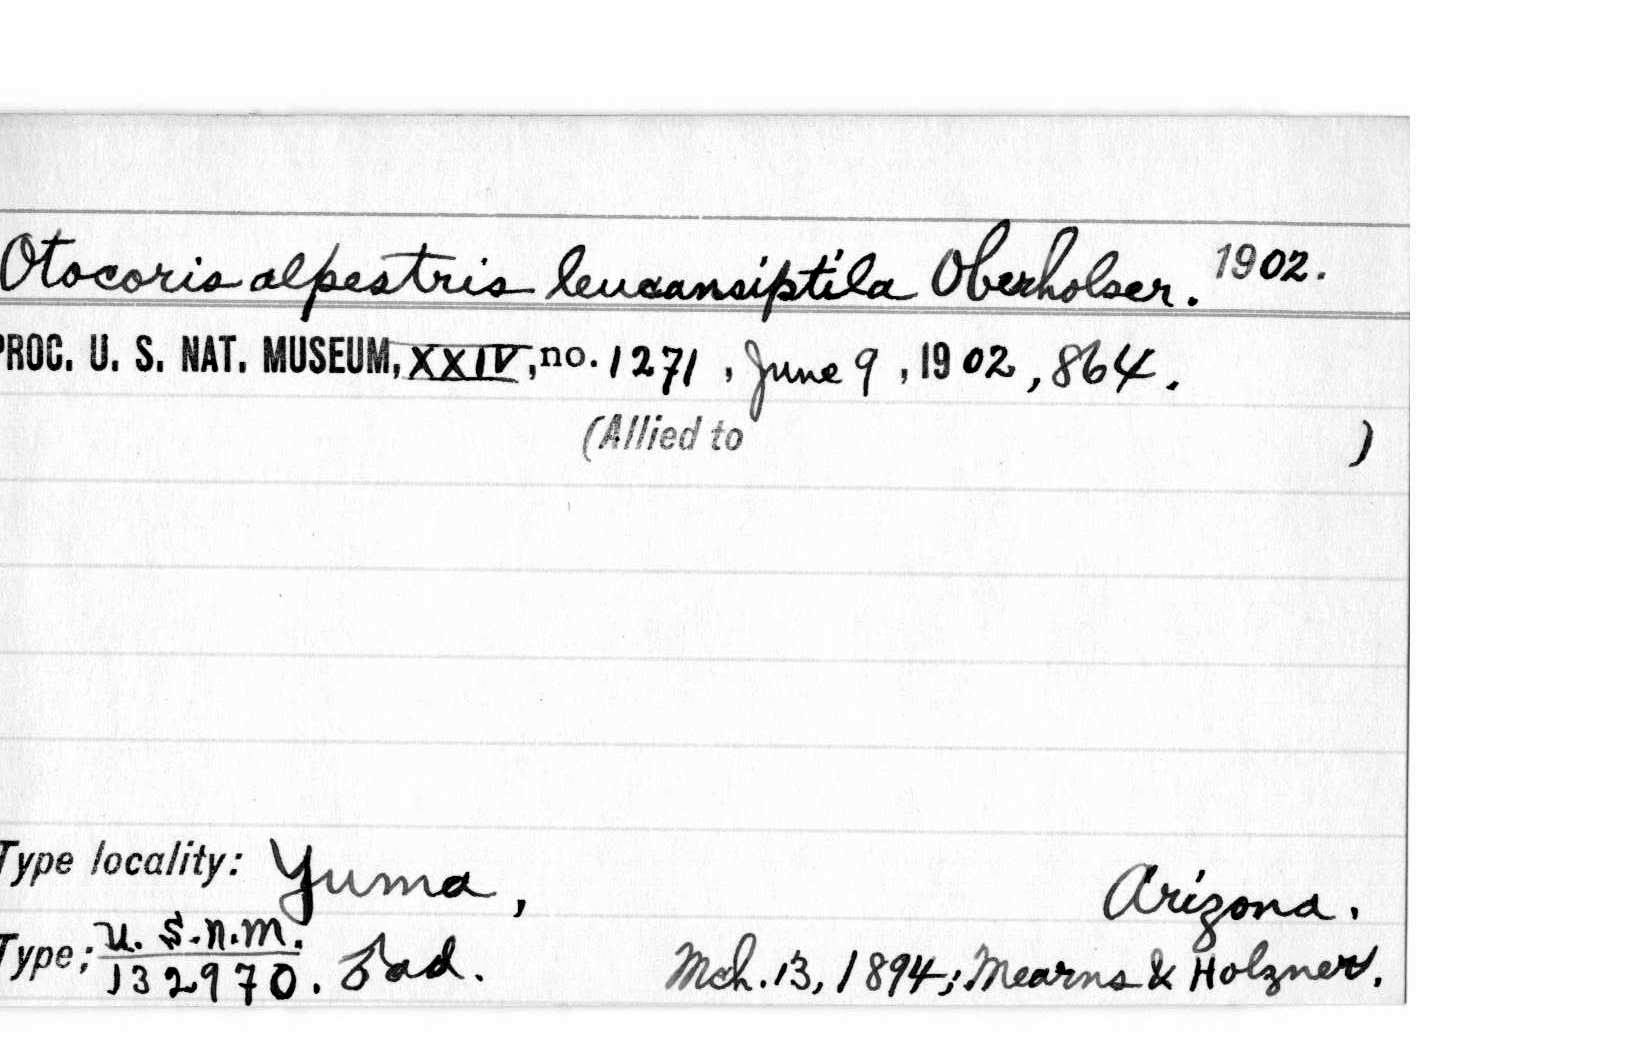 Otocoris alpestris leucansiptila Oberholser. 1902.
PROC. U. S. NAT. MUSEUM, XXIV, no. 1271, June 9, 1902, 864.
(Allied to )
Type locality: Yuma, Arizona.
Type; U. S. N. M.
132970. ad. Mch. 13, 1894; Mearns & Holzner.